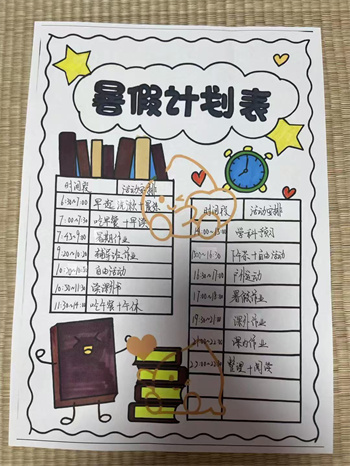 暑假计划表
时间段 活动安排
6:30~7:00 早起洗漱
7:00~7:30 吃早餐+早读
7:43~9:00 暑期作业
9:20~10:20
10:20~10:30 自由活动
10:30~11:30 读课外书
11:30~14:00 吃午餐+午休
时间段 活动安排
14:00~15:00 学科预习
下午茶+自由活动
16:30~17:00 户外运动
17:00~18:00 暑假作业
19:30~21:00 课外作业
课外作业
整理+阅读